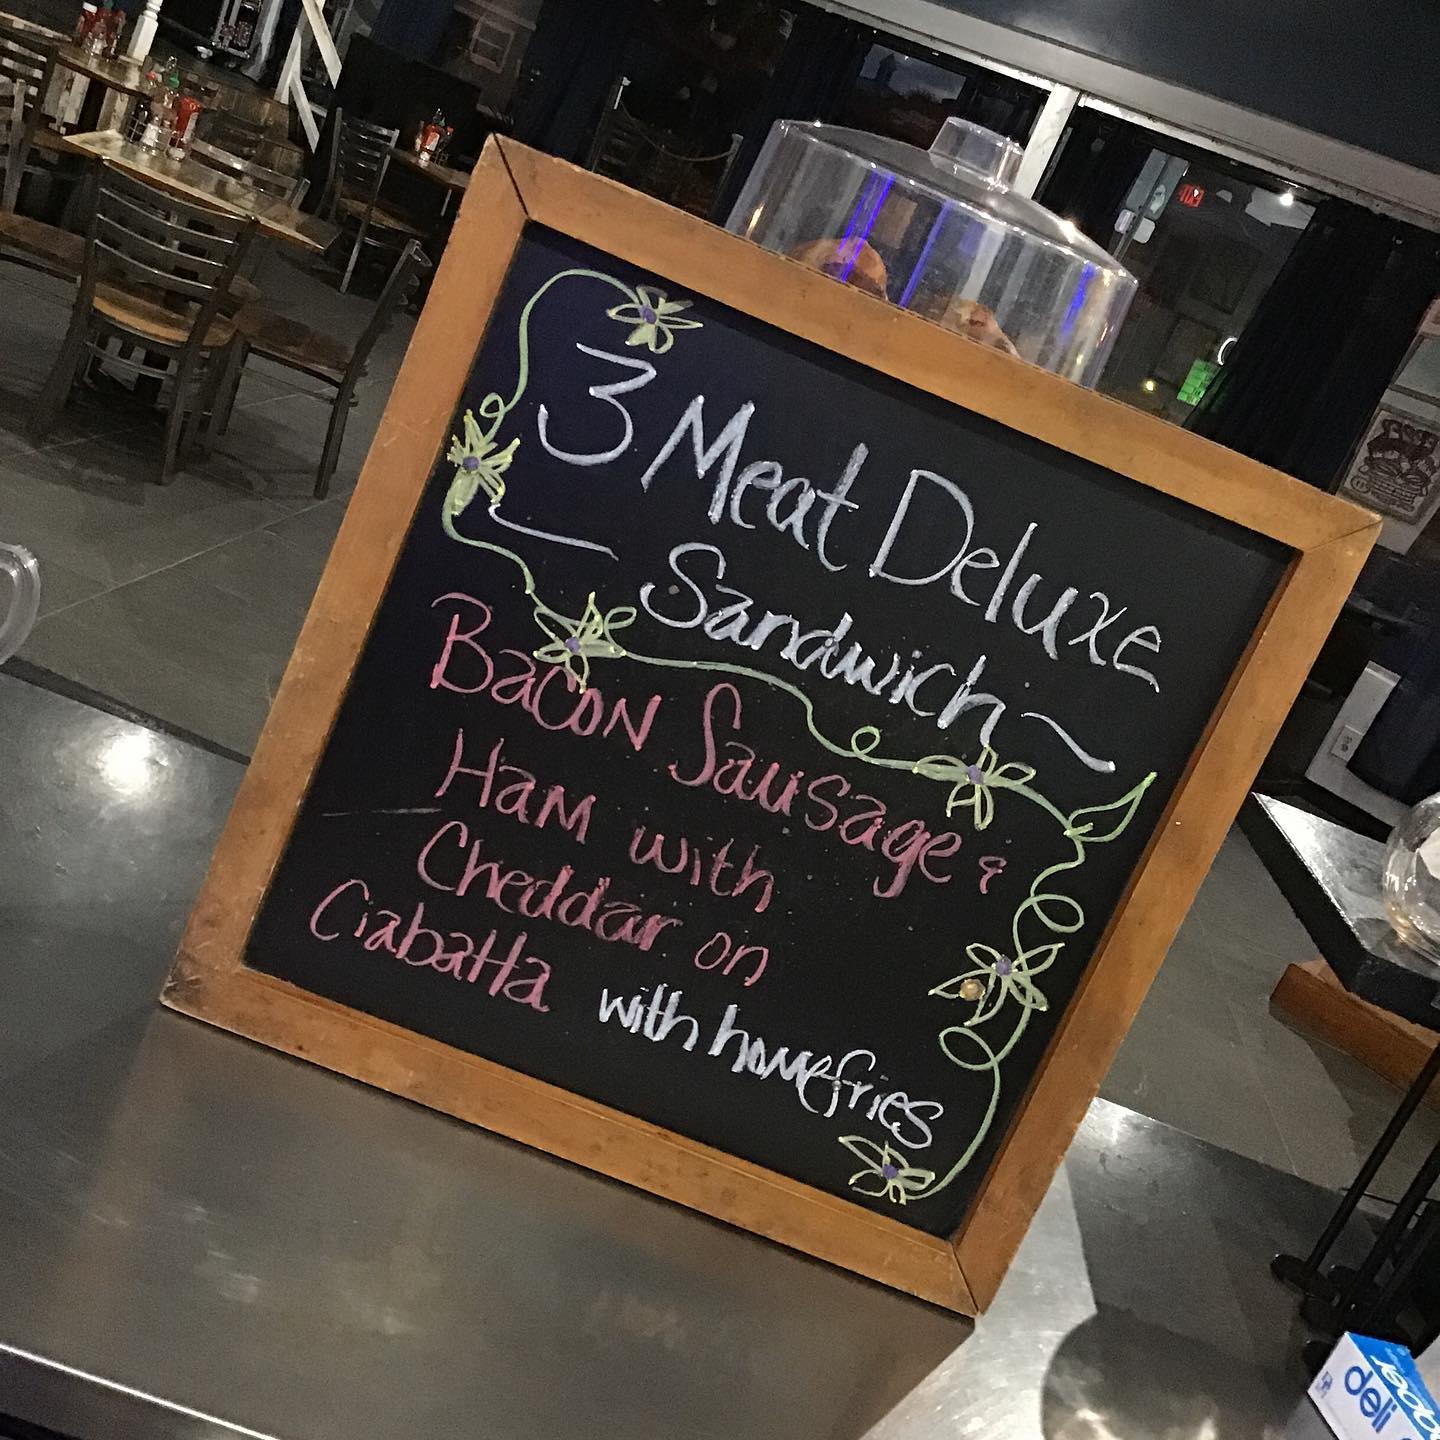 3 Meat Deluxe
~ Sandwich ~
Bacon Sausage &
Ham with
Cheddar on
Ciabatta with homefries
deli